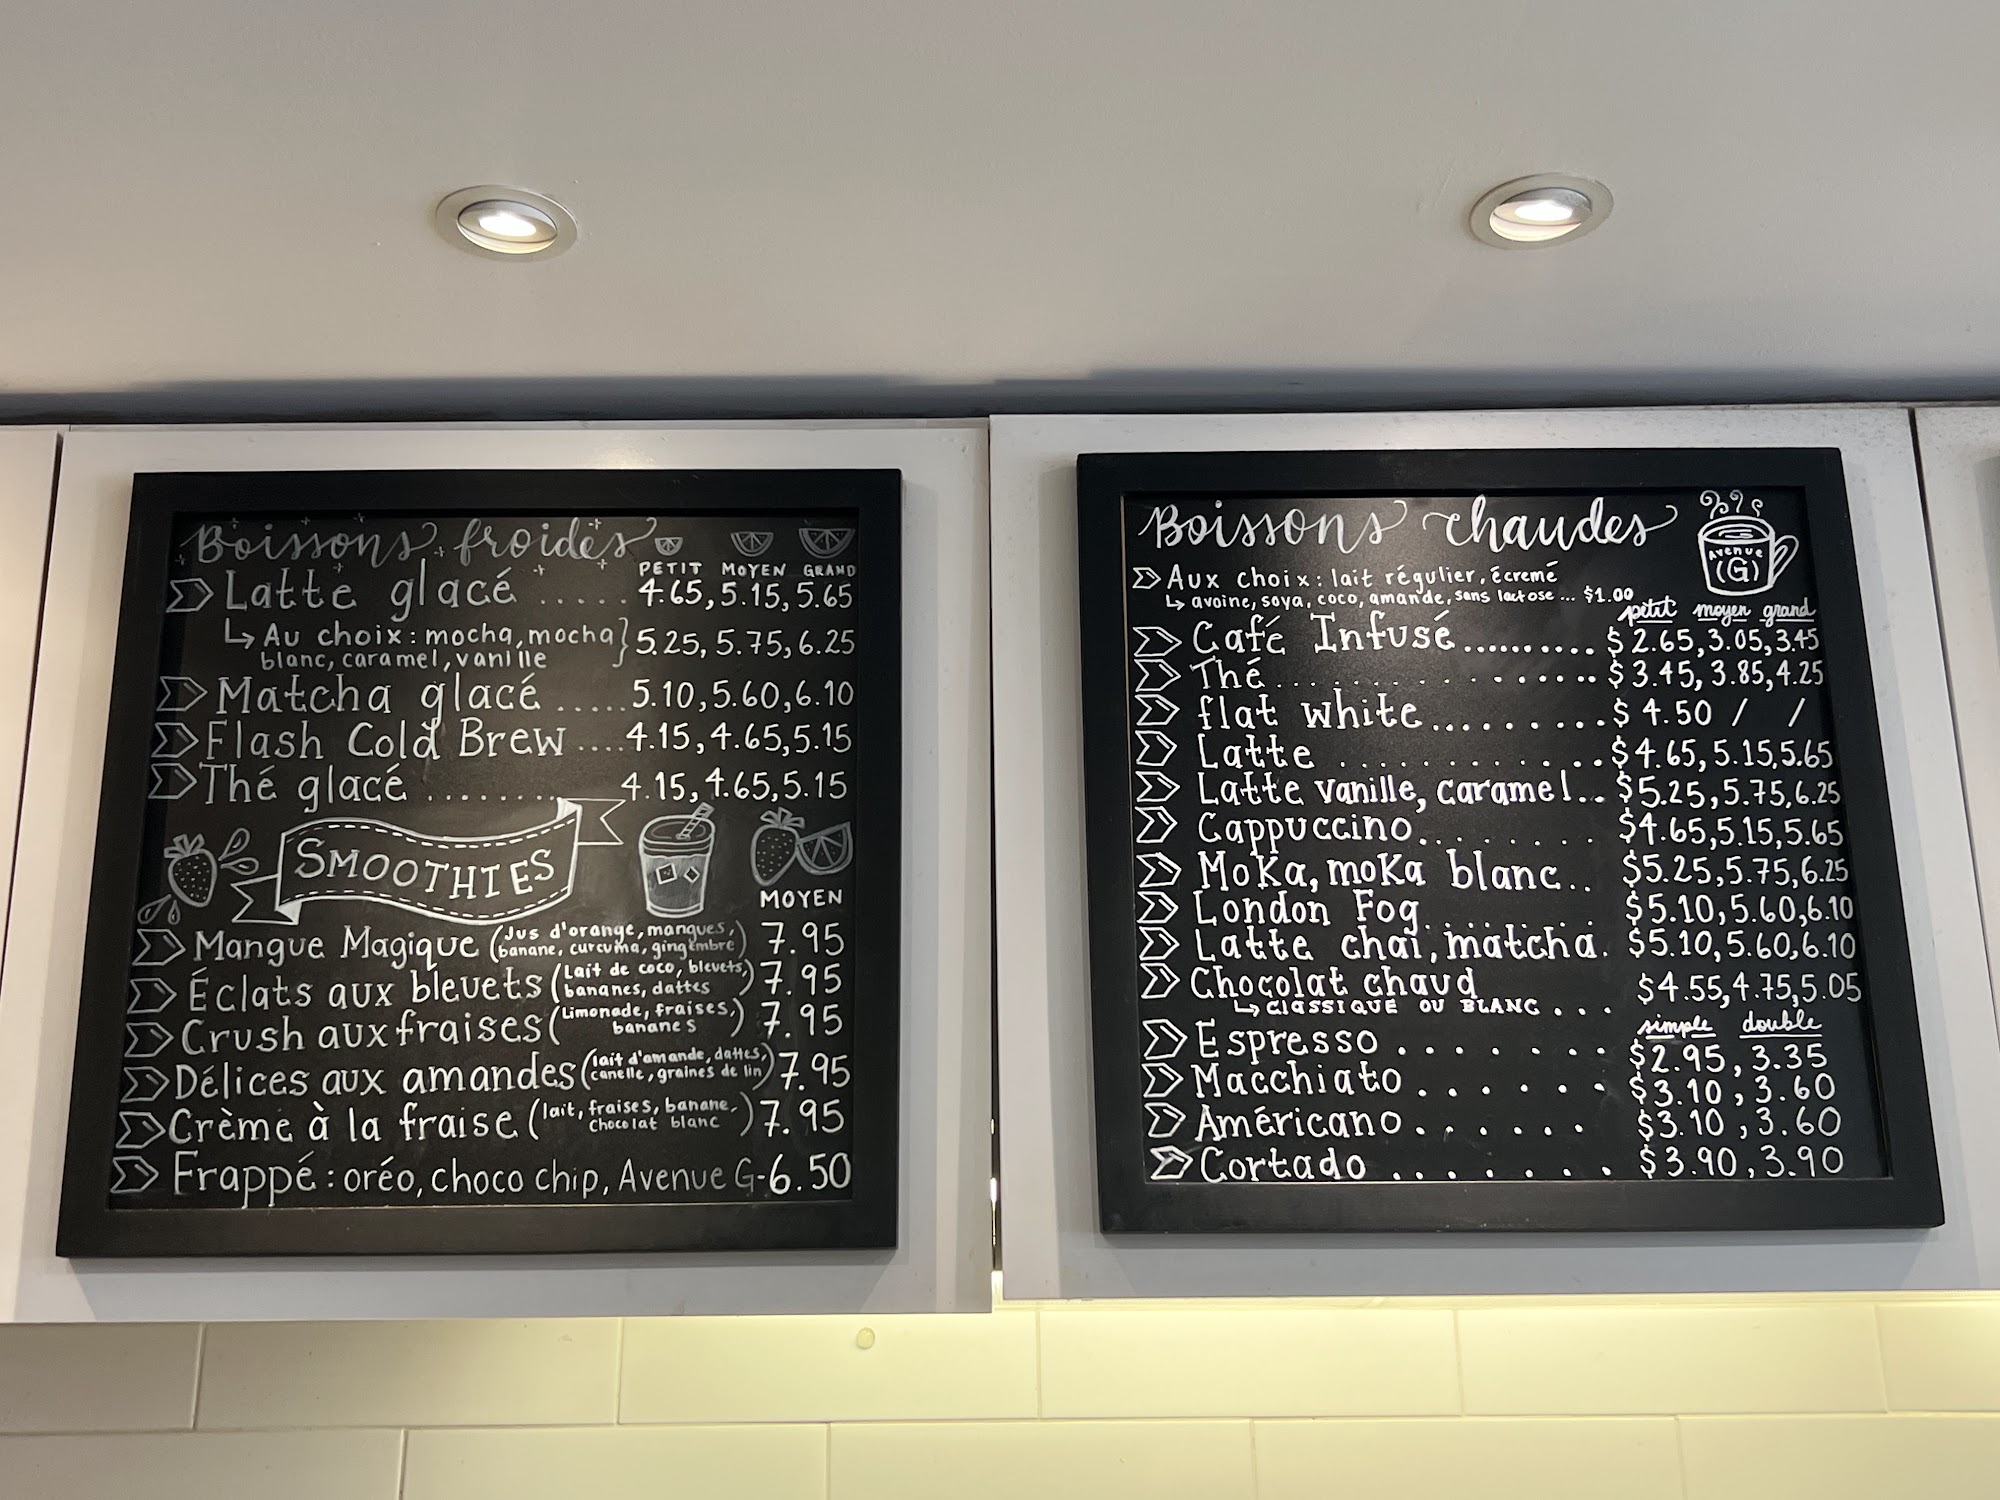 Boissons froides
PETIT MOYEN GRAND
Latte glacé ..... 4.65, 5.15, 5.65
↳ Au choix: mocha, mocha } 5.25, 5.75, 6.25
blanc, caramel, vanille
Matcha glacé ..... 5.10, 5.60, 6.10
Flash Cold Brew .... 4.15, 4.65, 5.15
Thé glacé ......... 4.15, 4.65, 5.15
SMOOTHIES
MOYEN
Mangue Magique (Jus d'orange, mangues, banane, curcuma, gingembre) 7.95
Éclats aux bleuets (Lait de coco, bleuets, bananes, dattes) 7.95
Crush aux fraises (Limonade, fraises, bananes) 7.95
Délices aux amandes (lait d'amande, dattes, canelle, graines de lin) 7.95
Crème à la fraise (lait, fraises, banane, chocolat blanc) 7.95
Frappé: oréo, choco chip, Avenue G - 6.50
Boissons chaudes
Avenue
(G)
Aux choix: lait régulier, écremé
↳ avoine, soya, coco, amande, sans lactose ... $1.00
petit moyen grand
Café Infusé .......... $2.65, 3.05, 3.45
Thé ................ $3.45, 3.85, 4.25
flat white ......... $4.50 / /
Latte ............. $4.65, 5.15, 5.65
Latte vanille, caramel .. $5.25, 5.75, 6.25
Cappuccino ........ $4.65, 5.15, 5.65
Moka, moka blanc .. $5.25, 5.75, 6.25
London Fog ....... $5.10, 5.60, 6.10
Latte chai, matcha. $5.10, 5.60, 6.10
Chocolat chaud
↳ CLASSIQUE OU BLANC ... $4.55, 4.75, 5.05
simple double
Espresso ....... $2.95, 3.35
Macchiato ...... $3.10, 3.60
Américano ...... $3.10, 3.60
Cortado ....... $3.90, 3.90